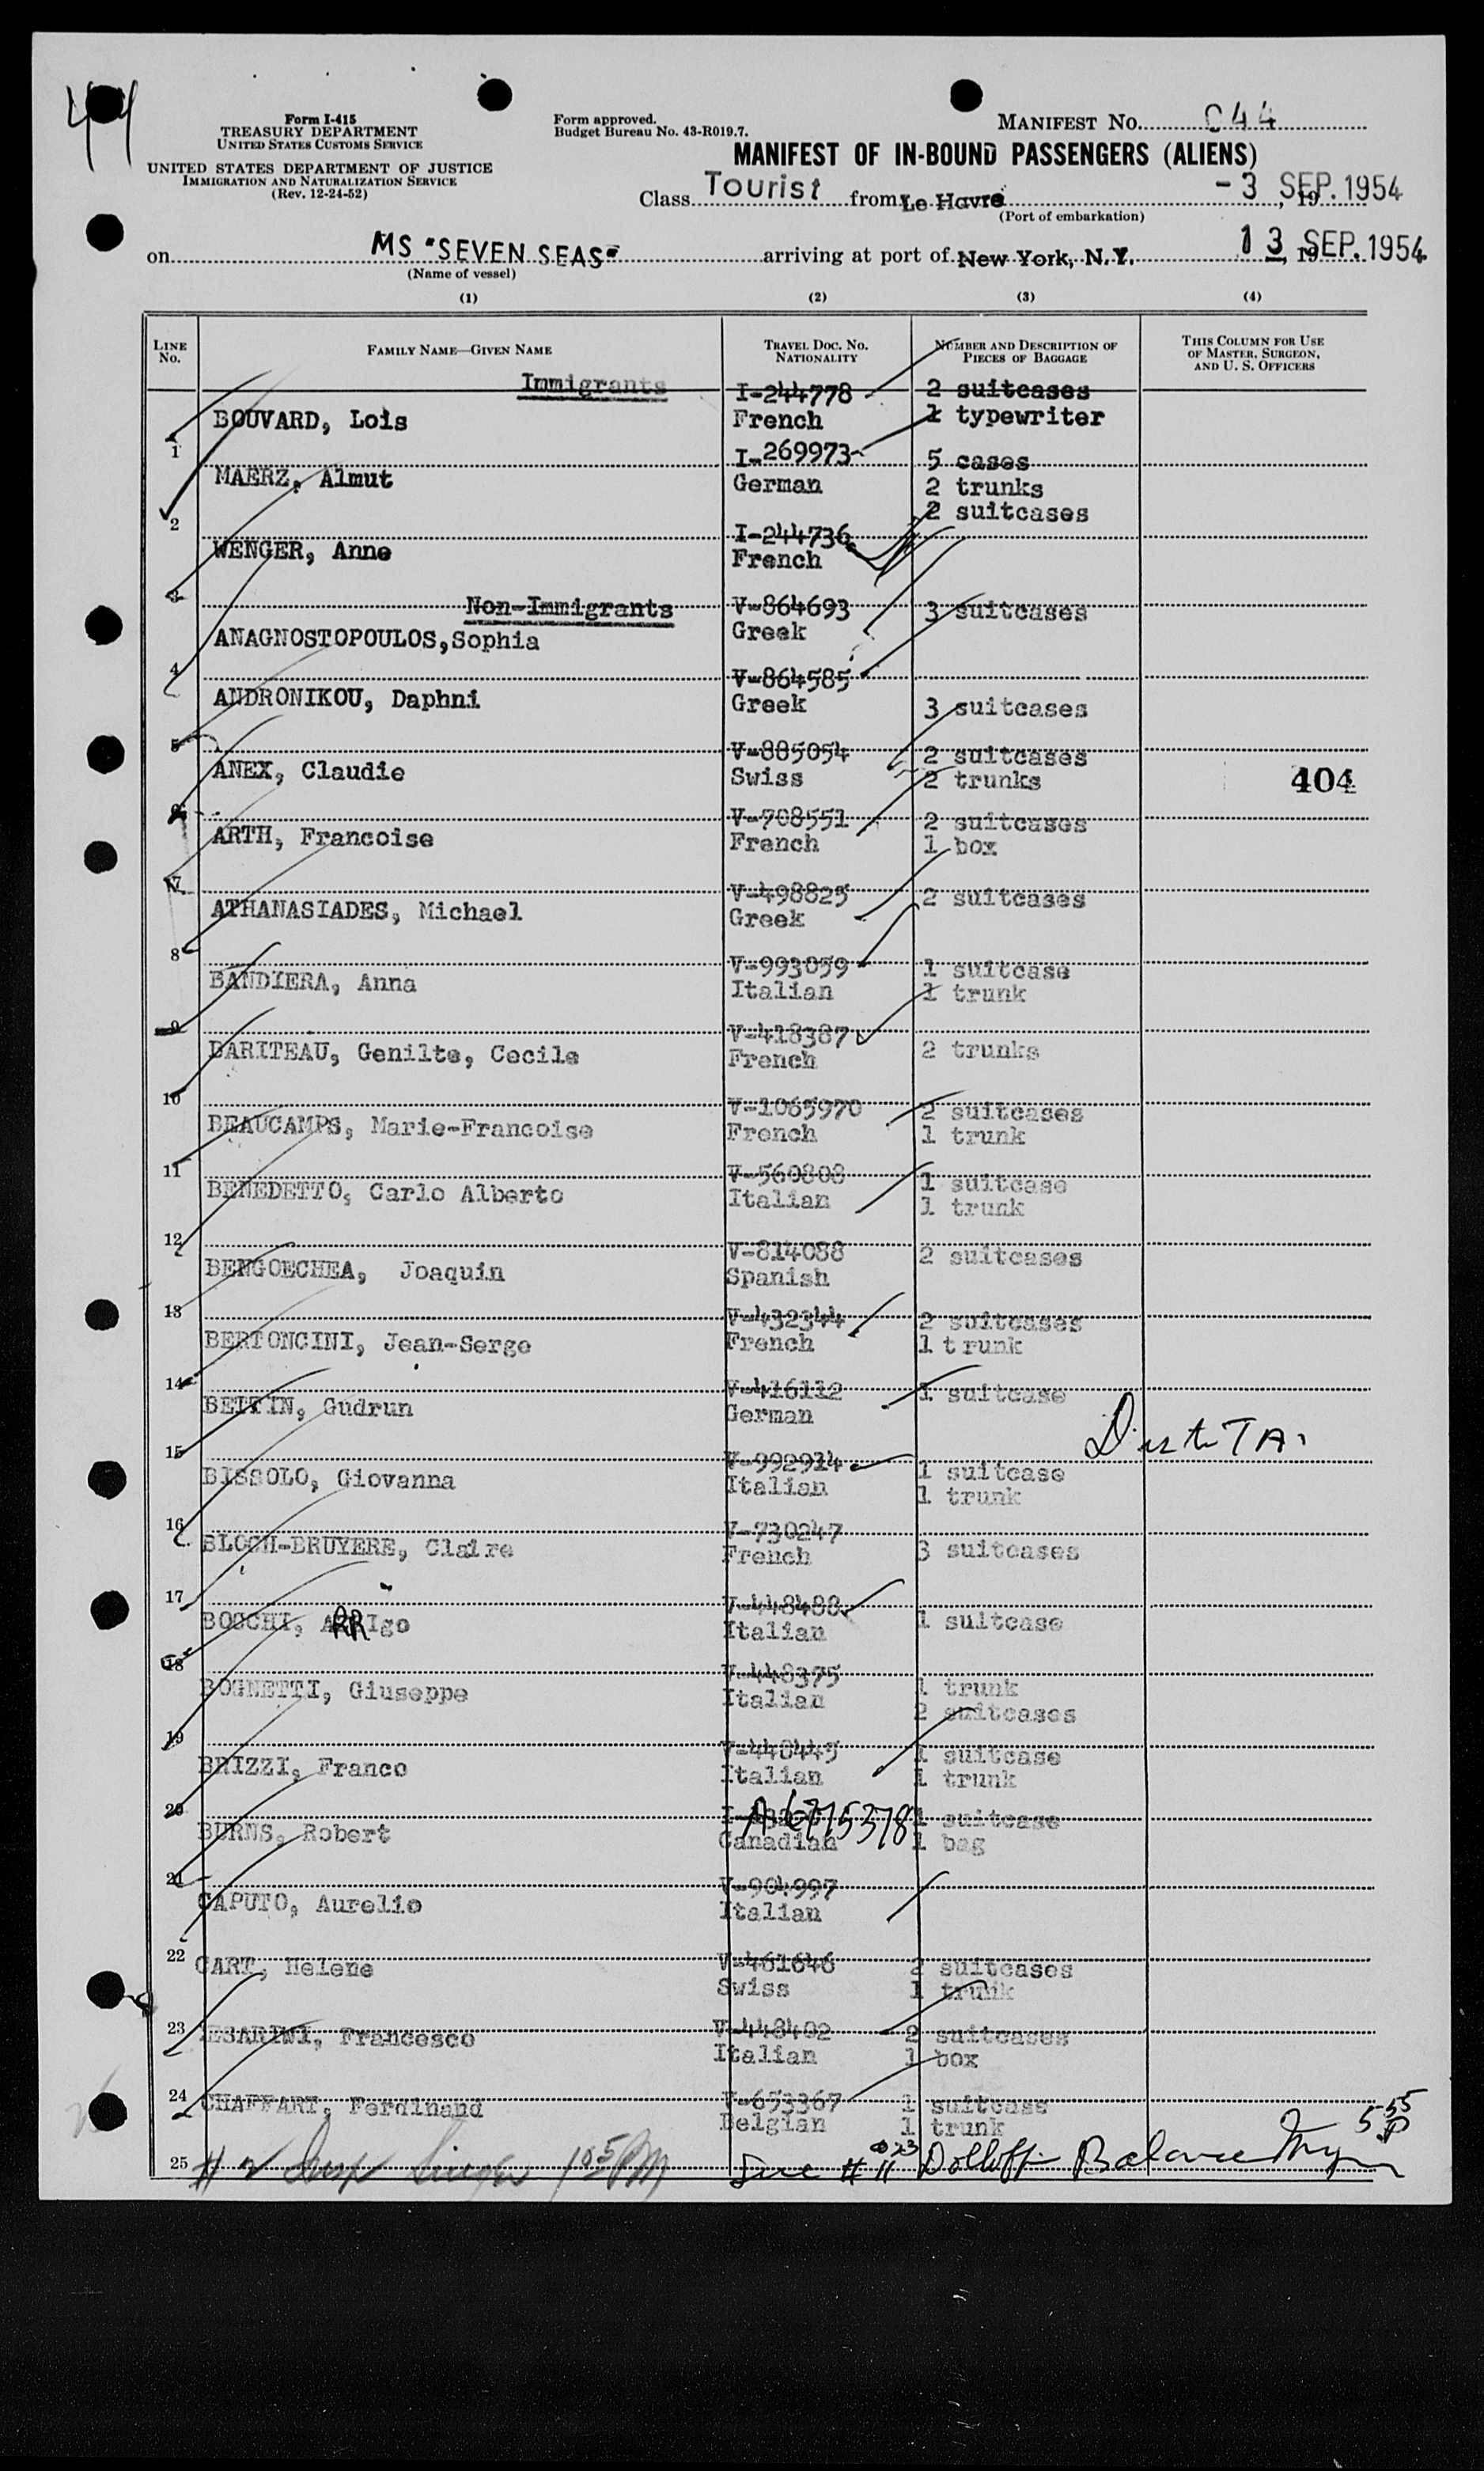 44
Form I-415
TREASURY DEPARTMENT
UNITED STATES CUSTOMS SERVICE
UNITED STATES DEPARTMENT OF JUSTICE
IMMIGRATION AND NATURALIZATION SERVICE
(Rev. 12-24-52)
Form approved.
Budget Bureau No. 43-R019.7.
MANIFEST NO. 044
MANIFEST OF IN-BOUND PASSENGERS (ALIENS)
Class Tourist from Le Havre -3 SEP. 1954, 19
(Port of embarkation)
on MS "SEVEN SEAS" arriving at port of New York, N.Y. 13 SEP. 1954, 19
(Name of vessel)
(1) (2) (3) (4)
LINE No. FAMILY NAME—GIVEN NAME TRAVEL DOC. NO. NATIONALITY NUMBER AND DESCRIPTION OF PIECES OF BAGGAGE THIS COLUMN FOR USE OF MASTER, SURGEON, AND U. S. OFFICERS
Immigrants I-244778 2 suitcases
BOUVARD, Lois French 1 typewriter
1 I-269973 5 cases
MAERZ, Almut German 2 trunks
2 suitcases
2 I-244736
WENGER, Anne French
3 Non-Immigrants V-864693 3 suitcases
ANAGNOSTOPOULOS, Sophia Greek
4 V-864585
ANDRONIKOU, Daphni Greek 3 suitcases
5 V-885054 2 suitcases
ANEX, Claudie Swiss 2 trunks 404
6 V-708551 2 suitcases
ARTH, Francoise French 1 box
7 V-498825 2 suitcases
ATHANASIADES, Michael Greek
8 V-993059 1 suitcase
BANDIERA, Anna Italian 1 trunk
9 V-418387
BARITEAU, Genilte, Cecile French 2 trunks
10 V-1065970 2 suitcases
BEAUCAMPS, Marie-Francoise French 1 trunk
11 V-560808 1 suitcase
BENEDETTO, Carlo Alberto Italian 1 trunk
12 V-814088 2 suitcases
BENGOECHEA, Joaquin Spanish
13 V-432344 2 suitcases
BERTONCINI, Jean-Serge French 1 trunk
14 V-416112 1 suitcase
BEITIN, Gudrun German
15 V-992914 1 suitcase
BISSOLO, Giovanna Italian 1 trunk
16 V-730247
BLOCH-BRUYERE, Claire French 3 suitcases
17 V-448488
BOSCHI, ARRIgo Italian 1 suitcase
18 V-448375 1 trunk
BOGNETTI, Giuseppe Italian 2 suitcases
19 V-448445 1 suitcase
BRIZZI, Franco Italian 1 trunk
20 A 6775378 1 suitcase
BURNS, Robert Canadian 1 bag
21 V-904997
CAPUTO, Aurelio Italian
22 V-461646 2 suitcases
CART, Helene Swiss 1 trunk
23 V-448402 2 suitcases
ESARINI, Francesco Italian 1 box
24 V-653367 1 suitcase
CHAFFART, Ferdinand Belgian 1 trunk
5 55 P
25 Balance